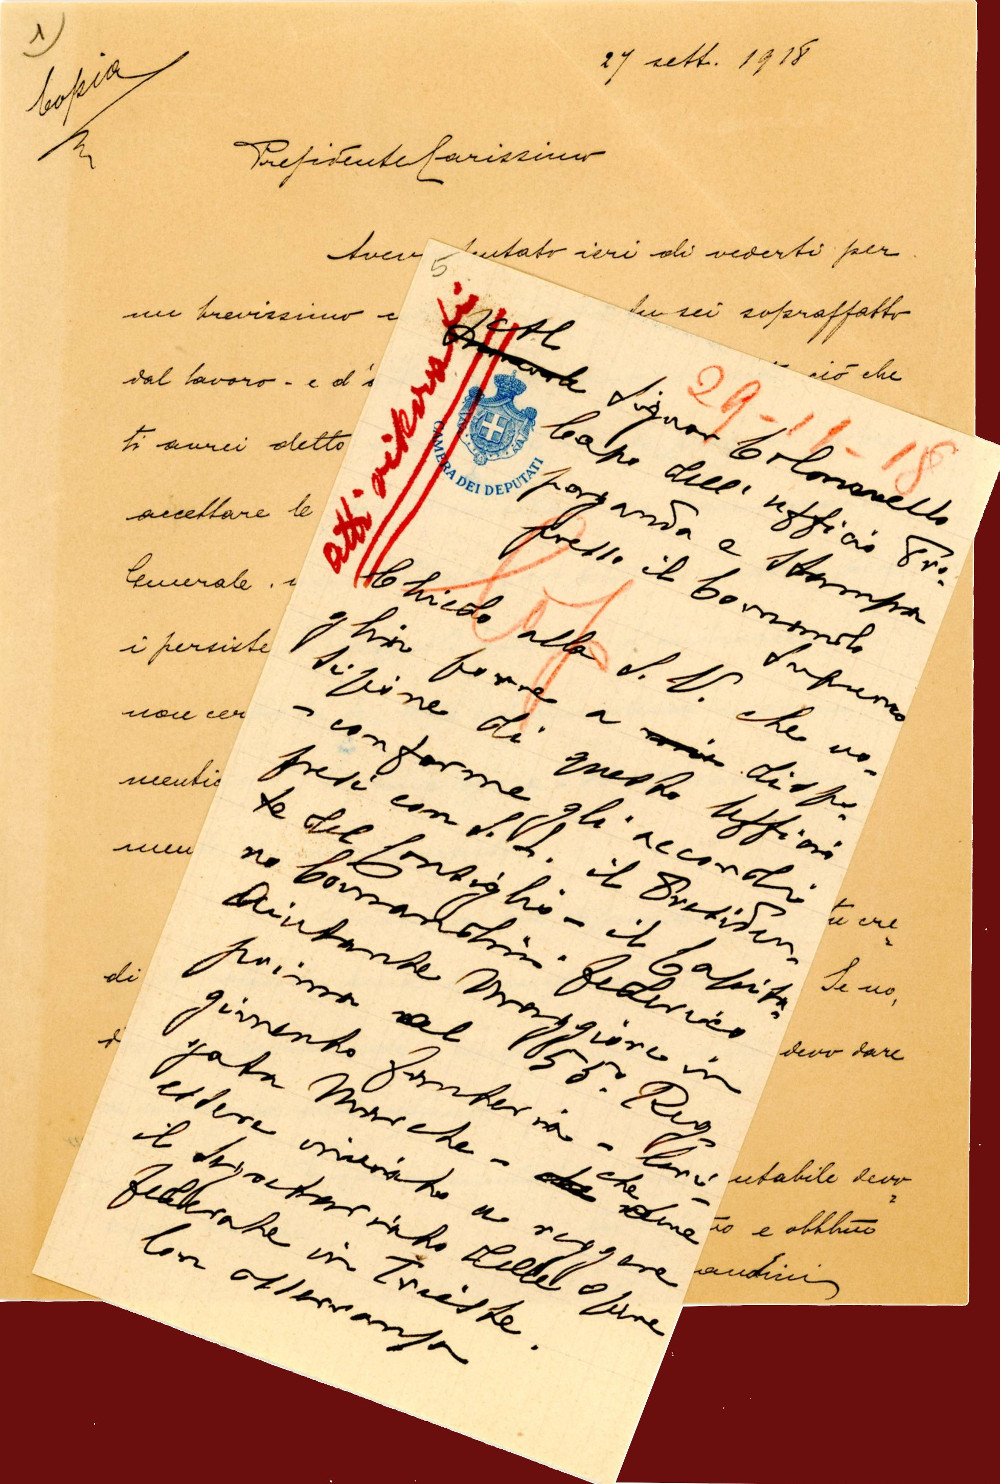 1)
Copia
27 sett. 1918
Presidente Carissimo
Avevo tentato ieri di vederti per
un brevissimo c
tu sei sopraffatto
dal lavoro - e d'
ciò che
ti avrei detto
accettare le
Generale.
i persiste
non cer
mentic
men
tu cre
di
Se no,
d
devo dare
utabile devo
to e obbl.mo
andini
5
atti vikova
29-11-18
CAMERA DEI DEPUTATI
Al
Signor Colonnello
Capo dell'ufficio Pro
paganda e Stampa
presso il Comando
Supremo
Chiedo alla S. V. che vo-
glia porre a dispo-
sizione di questo Ufficio
- conforme gli accordi
presi con S. E. il Presiden-
te del Consiglio - il Capita-
no Comandini Federico
Aiutante Maggiore in
prima al 55° Reg-
gimento fanteria - Bri-
gata Marche - che deve
essere inviato a reggere
il Segretariato delle Opere
federate in Trieste.
Con osservanza